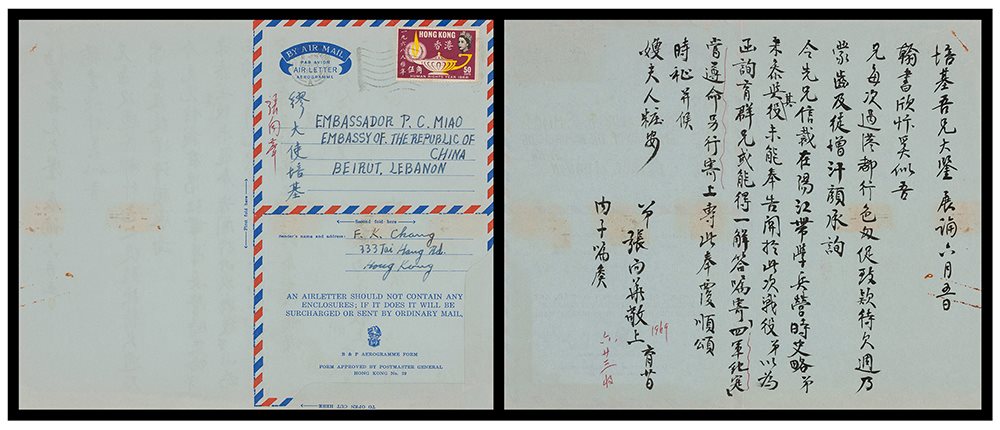 BY AIR MAIL
PAR AVION
AIR LETTER
AEROGRAMME
HONG KONG
香港
一九六八人權年
伍角
50
HUMAN RIGHTS YEAR 1968
張向華
繆大使培基
EMBASSADOR P. C. MIAO
EMBASSY OF THE REPUBLIC OF
CHINA
BEIRUT, LEBANON
First fold here
Second fold here
Sender's name and address:
F. K. Chang
333 Tai Hang Rd.
Hong Kong
AN AIRLETTER SHOULD NOT CONTAIN ANY
ENCLOSURES; IF IT DOES IT WILL BE
SURCHARGED OR SENT BY ORDINARY MAIL.
B & P AEROGRAMME FORM
FORM APPROVED BY POSTMASTER GENERAL
HONG KONG No. 19
TO OPEN CUT HERE
培基吾兄大鑒 展誦六月五日
翰書欣忭奚似吾
兄每次過港都行色匆促致款待欠週乃
蒙齒及徒增汗顏承詢
令先兄信裁在陽江帶學兵營時史略弟
未參與其役未能奉告關於此次戰役弟以為
函詢育群兄或能得一解答屬寄「四軍紀實」
當遵命另行寄上專此奉覆順頌
時祉并候
嫂夫人粧安
弟張向華敬上 六月廿日
1969
六.廿三收